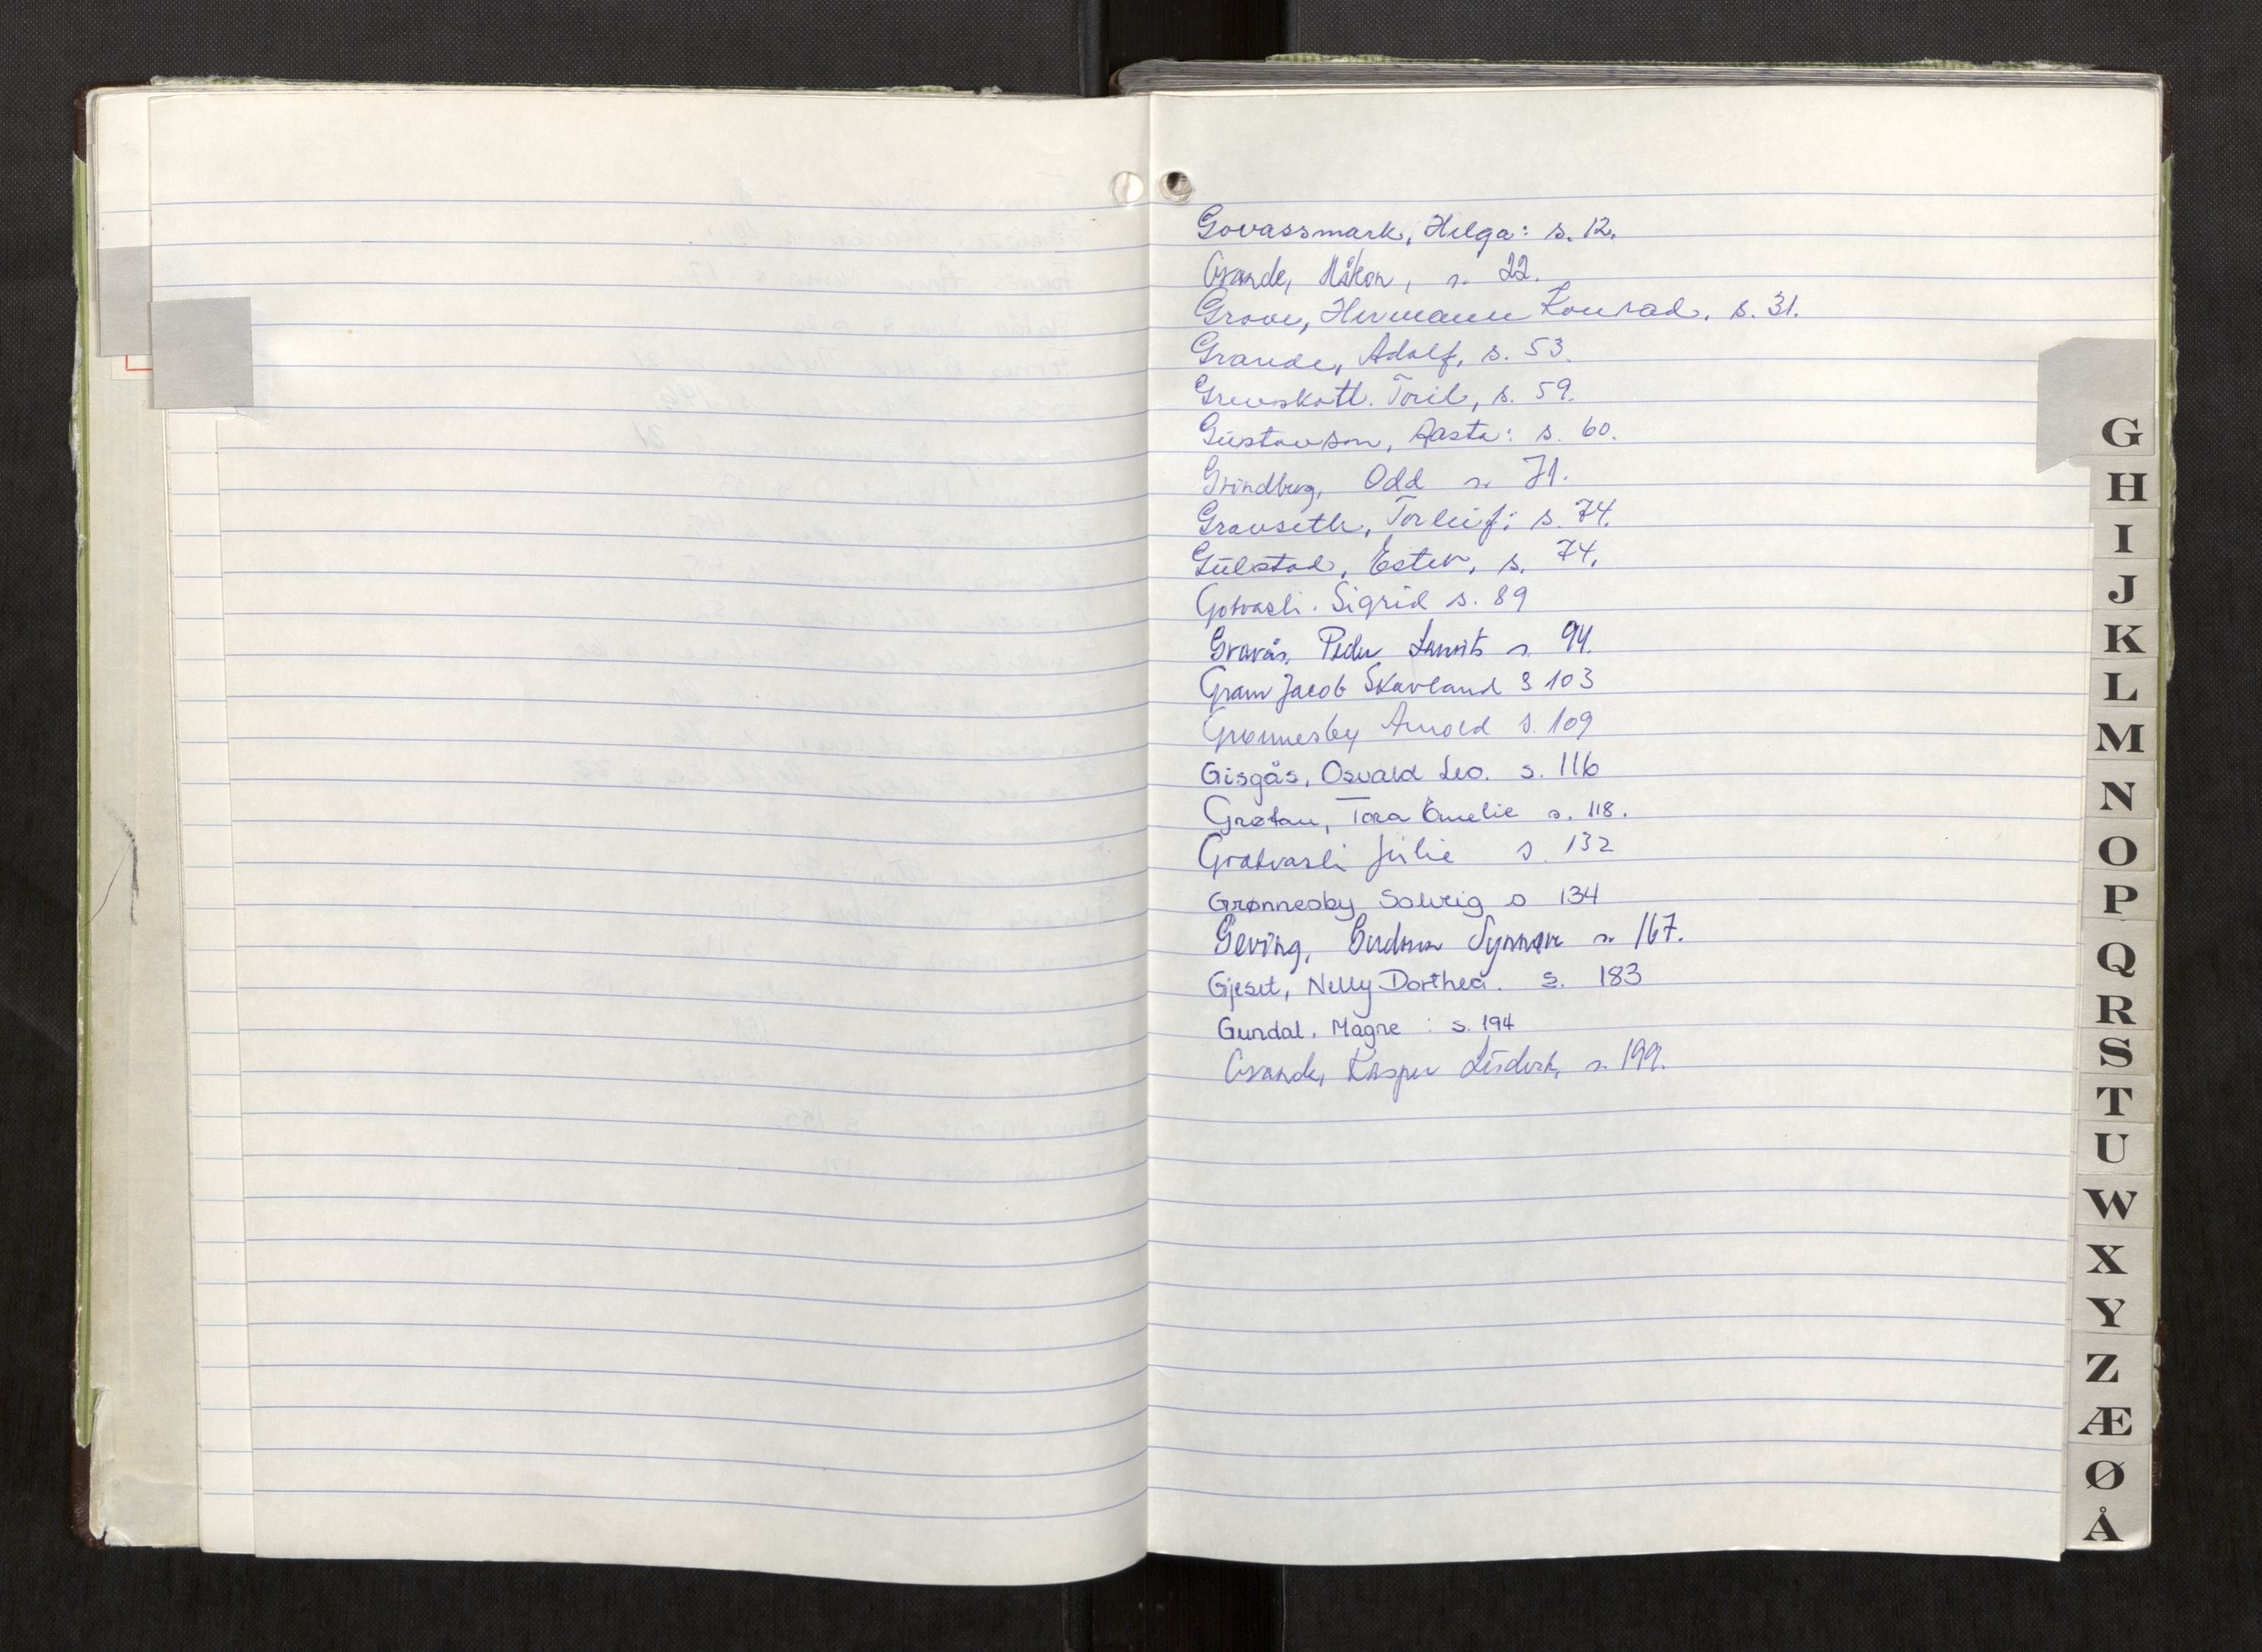 Govassmark, Helga: s. 12.
Grande, Håkon, s. 22.
Grove, Hermann Konrad, s. 31.
Grande, Adolf, s. 53.
Grevskott. Toril, s. 59.
Gustavson, Aasta: s. 60.
Grindberg, Odd s. 71.
Gravseth, Torleif: s. 74.
Gulstad, Ester, s. 74.
Gotvasli. Sigrid s. 89
Gravås, Peder Laurits s. 94.
Gram Jacob Skavland S 103
Grønnesby Arnold s. 109
Gisgås, Osvald Leo. s. 116
Grøtan, Tora Emelie s. 118.
Grotvasli Julie s. 132
Grønnesby Solveig s 134
Geving, Gudrun Synnøve s. 167.
Gjeset, Nelly Dorthea. s. 183
Gundal. Magne : s. 194
Grande, Kasper s. 199.
G
H
I
J
K
L
M
N
O
P
Q
R
S
T
U
W
X
Y
Z
Æ
Ø
Å